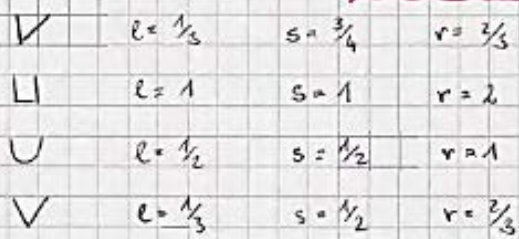 V l = 1/3 s = 3/4 r = 2/3
⊔ l = 1 s = 1 r = 2
U l = 1/2 s = 1/2 r = 1
V l = 1/3 s = 1/2 r = 2/3